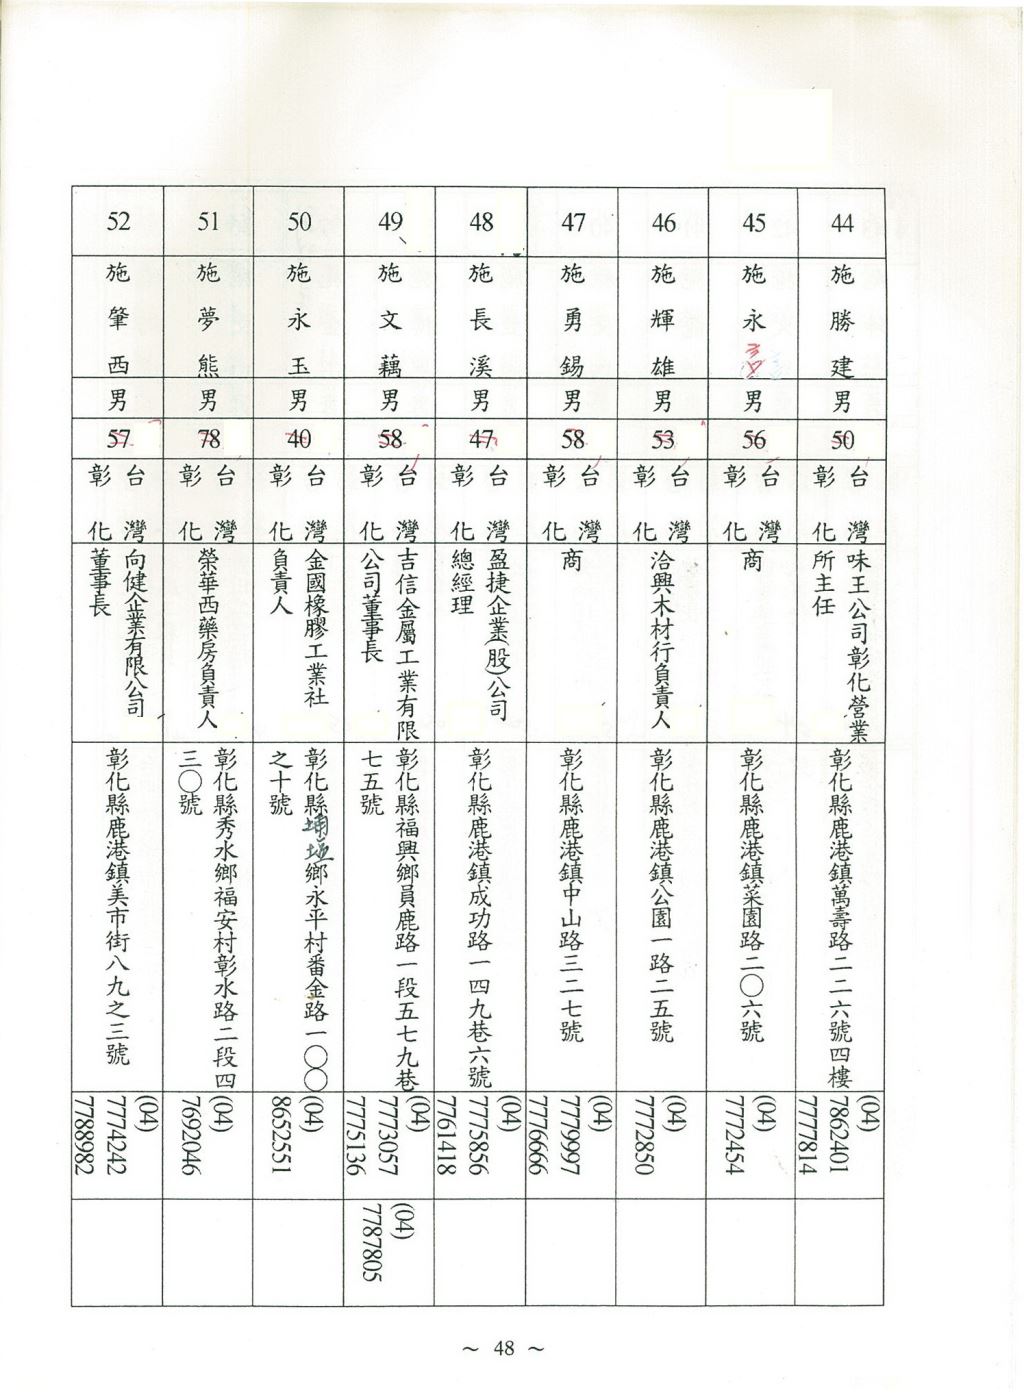 44
施勝建
男
50
台灣
彰化
味王公司彰化營業
所主任
彰化縣鹿港鎮萬壽路二二六號四樓
(04)
7862401
7777814
45
施永
男
56
台灣
彰化
商
彰化縣鹿港鎮菜園路二〇六號
(04)
7772454
46
施輝雄
男
53
台灣
彰化
洽興木材行負責人
彰化縣鹿港鎮公園一路二五號
(04)
7772850
47
施勇錫
男
58
台灣
彰化
商
彰化縣鹿港鎮中山路三二七號
(04)
7779997
7776666
48
施長溪
男
47
台灣
彰化
盈捷企業(股)公司
總經理
彰化縣鹿港鎮成功路一四九巷六號
(04)
7775856
7761418
49
施文藕
男
58
台灣
彰化
吉信金屬工業有限
公司董事長
彰化縣福興鄉員鹿路一段五七九巷
七五號
(04)
7773057
7775136
(04)
7787805
50
施永玉
男
40
台灣
彰化
金國橡膠工業社
負責人
彰化縣埔鹽鄉永平村番金路一〇〇
之十號
(04)
8652551
51
施夢熊
男
78
台灣
彰化
榮華西藥房負責人
彰化縣秀水鄉福安村彰水路二段四
三〇號
(04)
7692046
52
施肇西
男
57
台灣
彰化
向健企業有限公司
董事長
彰化縣鹿港鎮美市街八九之三號
(04)
7774242
7788982
~ 48 ~